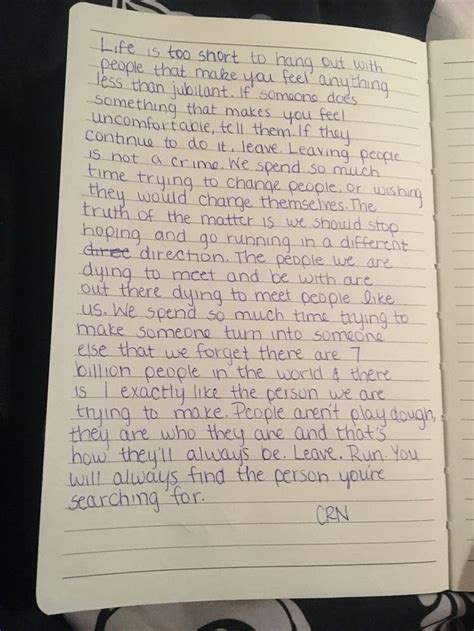 Life is too short to hang out with
people that make you feel anything
less than jubilant. If someone does
something that makes you feel
uncomfortable, tell them. If they
continue to do it, leave. Leaving people
is not a crime. We spend so much
time trying to change people, or wishing
they would change themselves. The
truth of the matter is we should stop
hoping and go running in a different
diree direction. The people we are
dying to meet and be with are
out there dying to meet people like
us. We spend so much time trying to
make someone turn into someone
else that we forget there are 7
billion people in the world & there
is 1 exactly like the person we are
trying to make. People aren't play dough,
they are who they are and that's
how they'll always be. Leave. Run. You
will always find the person you're
searching for.
CRN